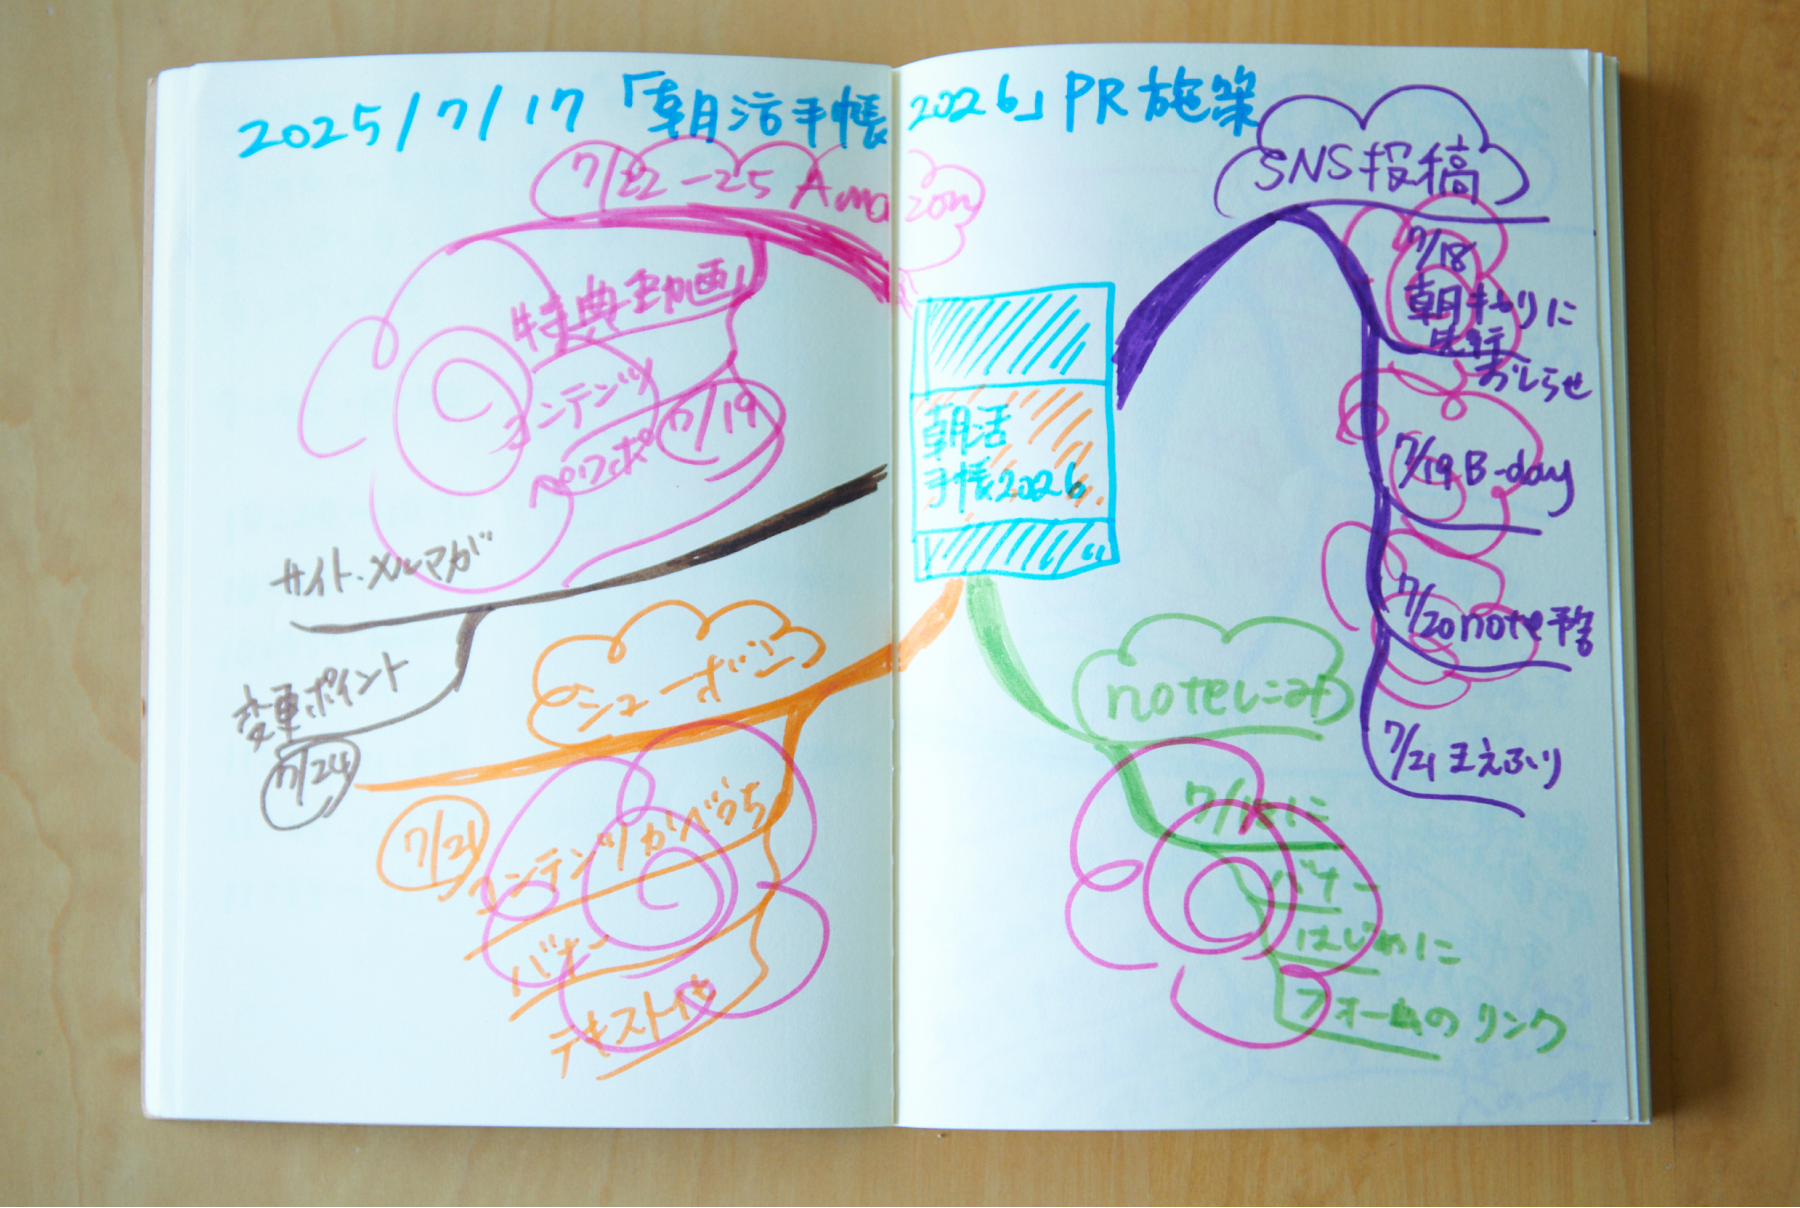 2025/7/17 「朝活手帳2026」PR施策
7/22-25 Amazon
特典動画
コンテンツ
ペワポ 7/19
サイト・メルマガ
変更ポイント
7/24
シューホー
7/21
コンテンツかべうち
バナー
テキスト化
朝活
手帳2026
SNS投稿
7/18
朝キャリに
先行
おしらせ
7/19 B-day
7/20 note予告
7/21 まえふり
noteしこみ
バナー
はじめに
フォームのリンク